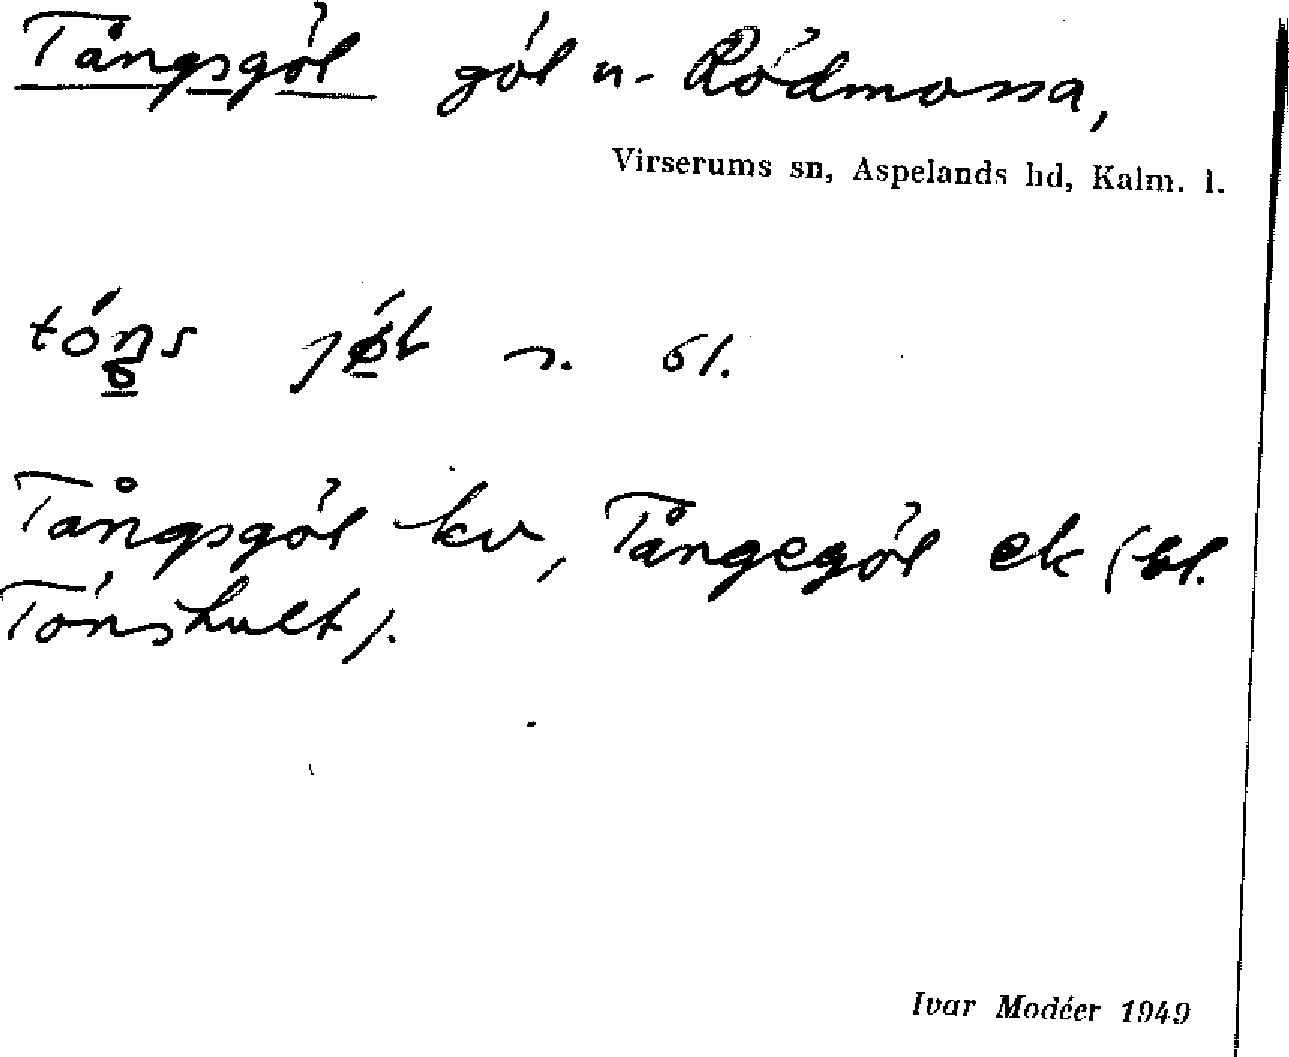 Tångsgöl göl n. Rödmossa,
Virserums sn, Aspelands hd, Kalm. l.
n. öl.
Tångsgöl kv, Tångegöl ek (bl.
Tönshult).
Ivar Modéer 1949